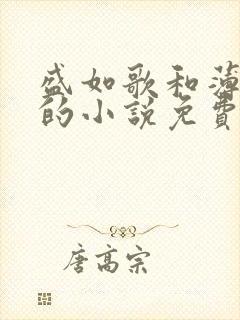 盛如歌和薄
的小説免費
唐高宗